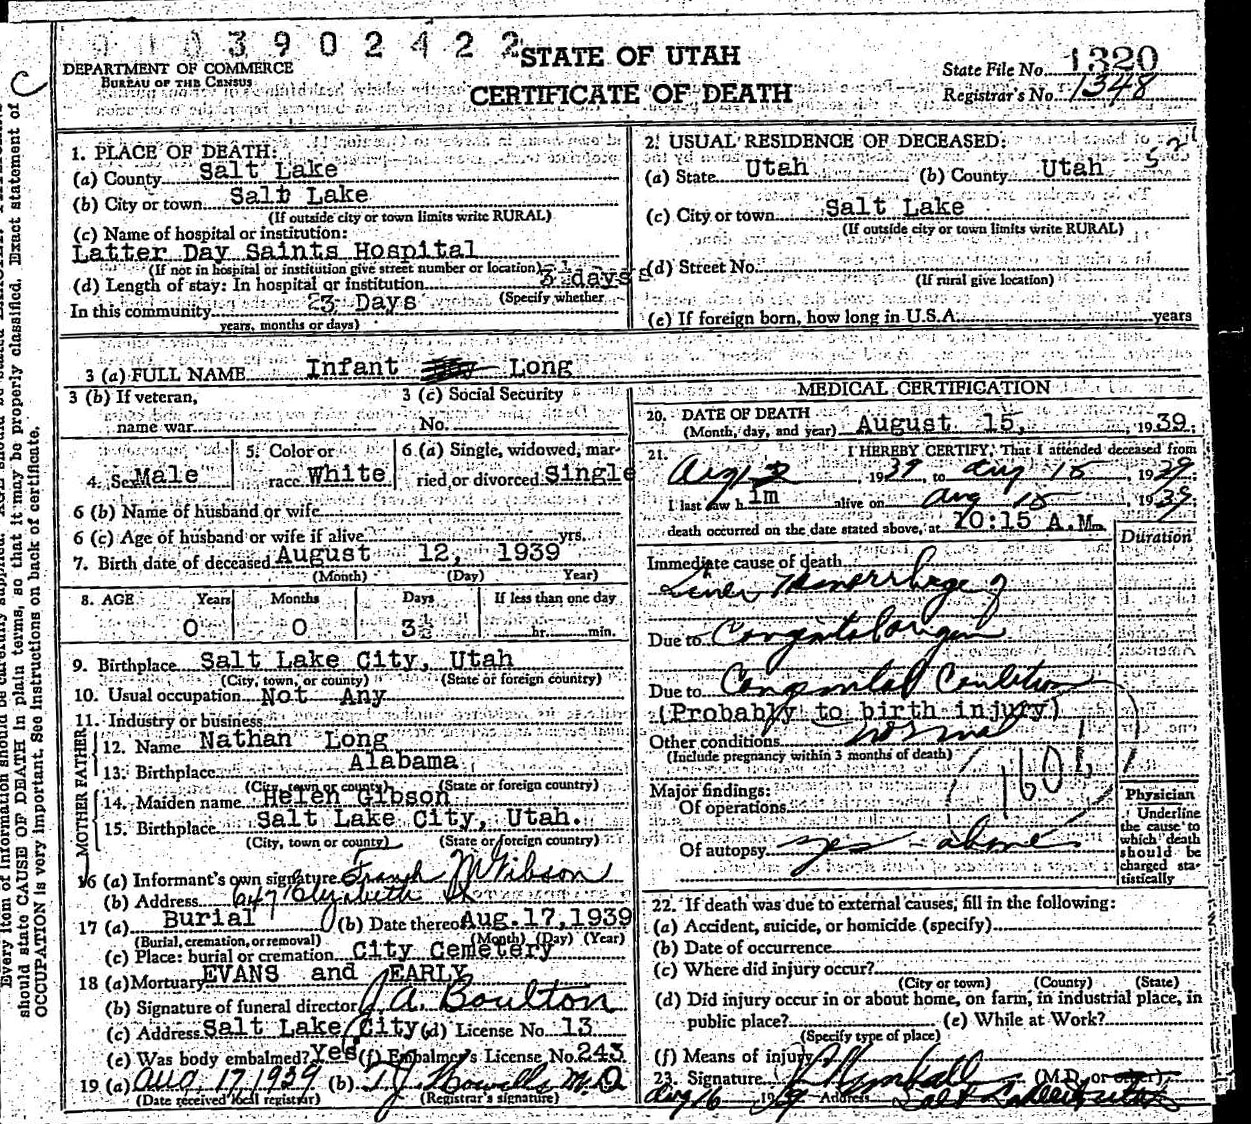 0 0 0 3 9 0 2 4 2 2
STATE OF UTAH
CERTIFICATE OF DEATH
DEPARTMENT OF COMMERCE
BUREAU OF THE CENSUS
State File No. 1320
Registrar's No. 1348
C
1. PLACE OF DEATH:
(a) County Salt Lake
(b) City or town Salt Lake
(If outside city or town limits write RURAL)
(c) Name of hospital or institution:
Latter Day Saints Hospital
(If not in hospital or institution give street number or location)
(d) Length of stay: In hospital or institution 3½ days
(Specify whether
In this community 3 Days
years, months or days)
2. USUAL RESIDENCE OF DECEASED:
(a) State Utah (b) County Utah
(c) City or town Salt Lake
(If outside city or town limits write RURAL)
(d) Street No.
(If rural give location)
(e) If foreign born, how long in U.S.A. years
3 (a) FULL NAME Infant Long
3 (b) If veteran,
name war
3 (c) Social Security
No.
4. Sex Male
5. Color or
race White
6 (a) Single, widowed, mar-
ried or divorced Single
6 (b) Name of husband or wife
6 (c) Age of husband or wife if alive yrs.
7. Birth date of deceased August 12, 1939
(Month) (Day) Year)
8. AGE Years Months Days If less than one day
0 0 3½ hr. min.
9. Birthplace Salt Lake City, Utah
(City, town, or county) (State or foreign country)
10. Usual occupation Not Any
11. Industry or business
FATHER
12. Name Nathan Long
13. Birthplace Alabama
(City, town or county) (State or foreign country)
MOTHER
14. Maiden name Helen Gibson
15. Birthplace Salt Lake City, Utah.
(City, town or county) (State or foreign country)
16 (a) Informant's own signature Frank M Gibson
(b) Address 647 Elizabeth St
17 (a) Burial (b) Date thereof Aug. 17, 1939
(Burial, cremation, or removal) (Month) (Day) (Year)
(c) Place: burial or cremation City Cemetery
18 (a) Mortuary EVANS and EARLY
(b) Signature of funeral director J. A. Boulton
(c) Address Salt Lake City (d) License No. 13
(e) Was body embalmed? Yes (f) Embalmer's License No. 243
19 (a) AUG. 17 1939 (b) T. J. Howells M.D.
(Date received local registrar) (Registrar's signature)
MEDICAL CERTIFICATION
20. DATE OF DEATH
(Month, day, and year) August 15, 1939.
21. I HEREBY CERTIFY, That I attended deceased from
Aug 12 1939 to Aug 15, 1939
I last saw him alive on Aug 15 1939
death occurred on the date stated above, at 10:15 A.M.
Duration
Immediate cause of death
Liver Hemorrhage of
Due to Congenital origin
Due to Congenital Condition
(Probably to birth injury)
Other conditions normal
(Include pregnancy within 3 months of death)
Major findings:
Of operations
Of autopsy yes - above
Physician
Underline
the cause to
which death
should be
charged sta-
tistically
22. If death was due to external causes, fill in the following:
(a) Accident, suicide, or homicide (specify)
(b) Date of occurrence
(c) Where did injury occur?
(City or town) (County) (State)
(d) Did injury occur in or about home, on farm, in industrial place, in
public place? (e) While at Work?
(Specify type of place)
(f) Means of injury
23. Signature Kimball (M.D. or other)
Aug 16 1939 Address Salt Lake City Utah
should state CAUSE OF DEATH in plain terms, so that it may be properly classified. Exact statement of
OCCUPATION is very important. See instructions on back of certificate.